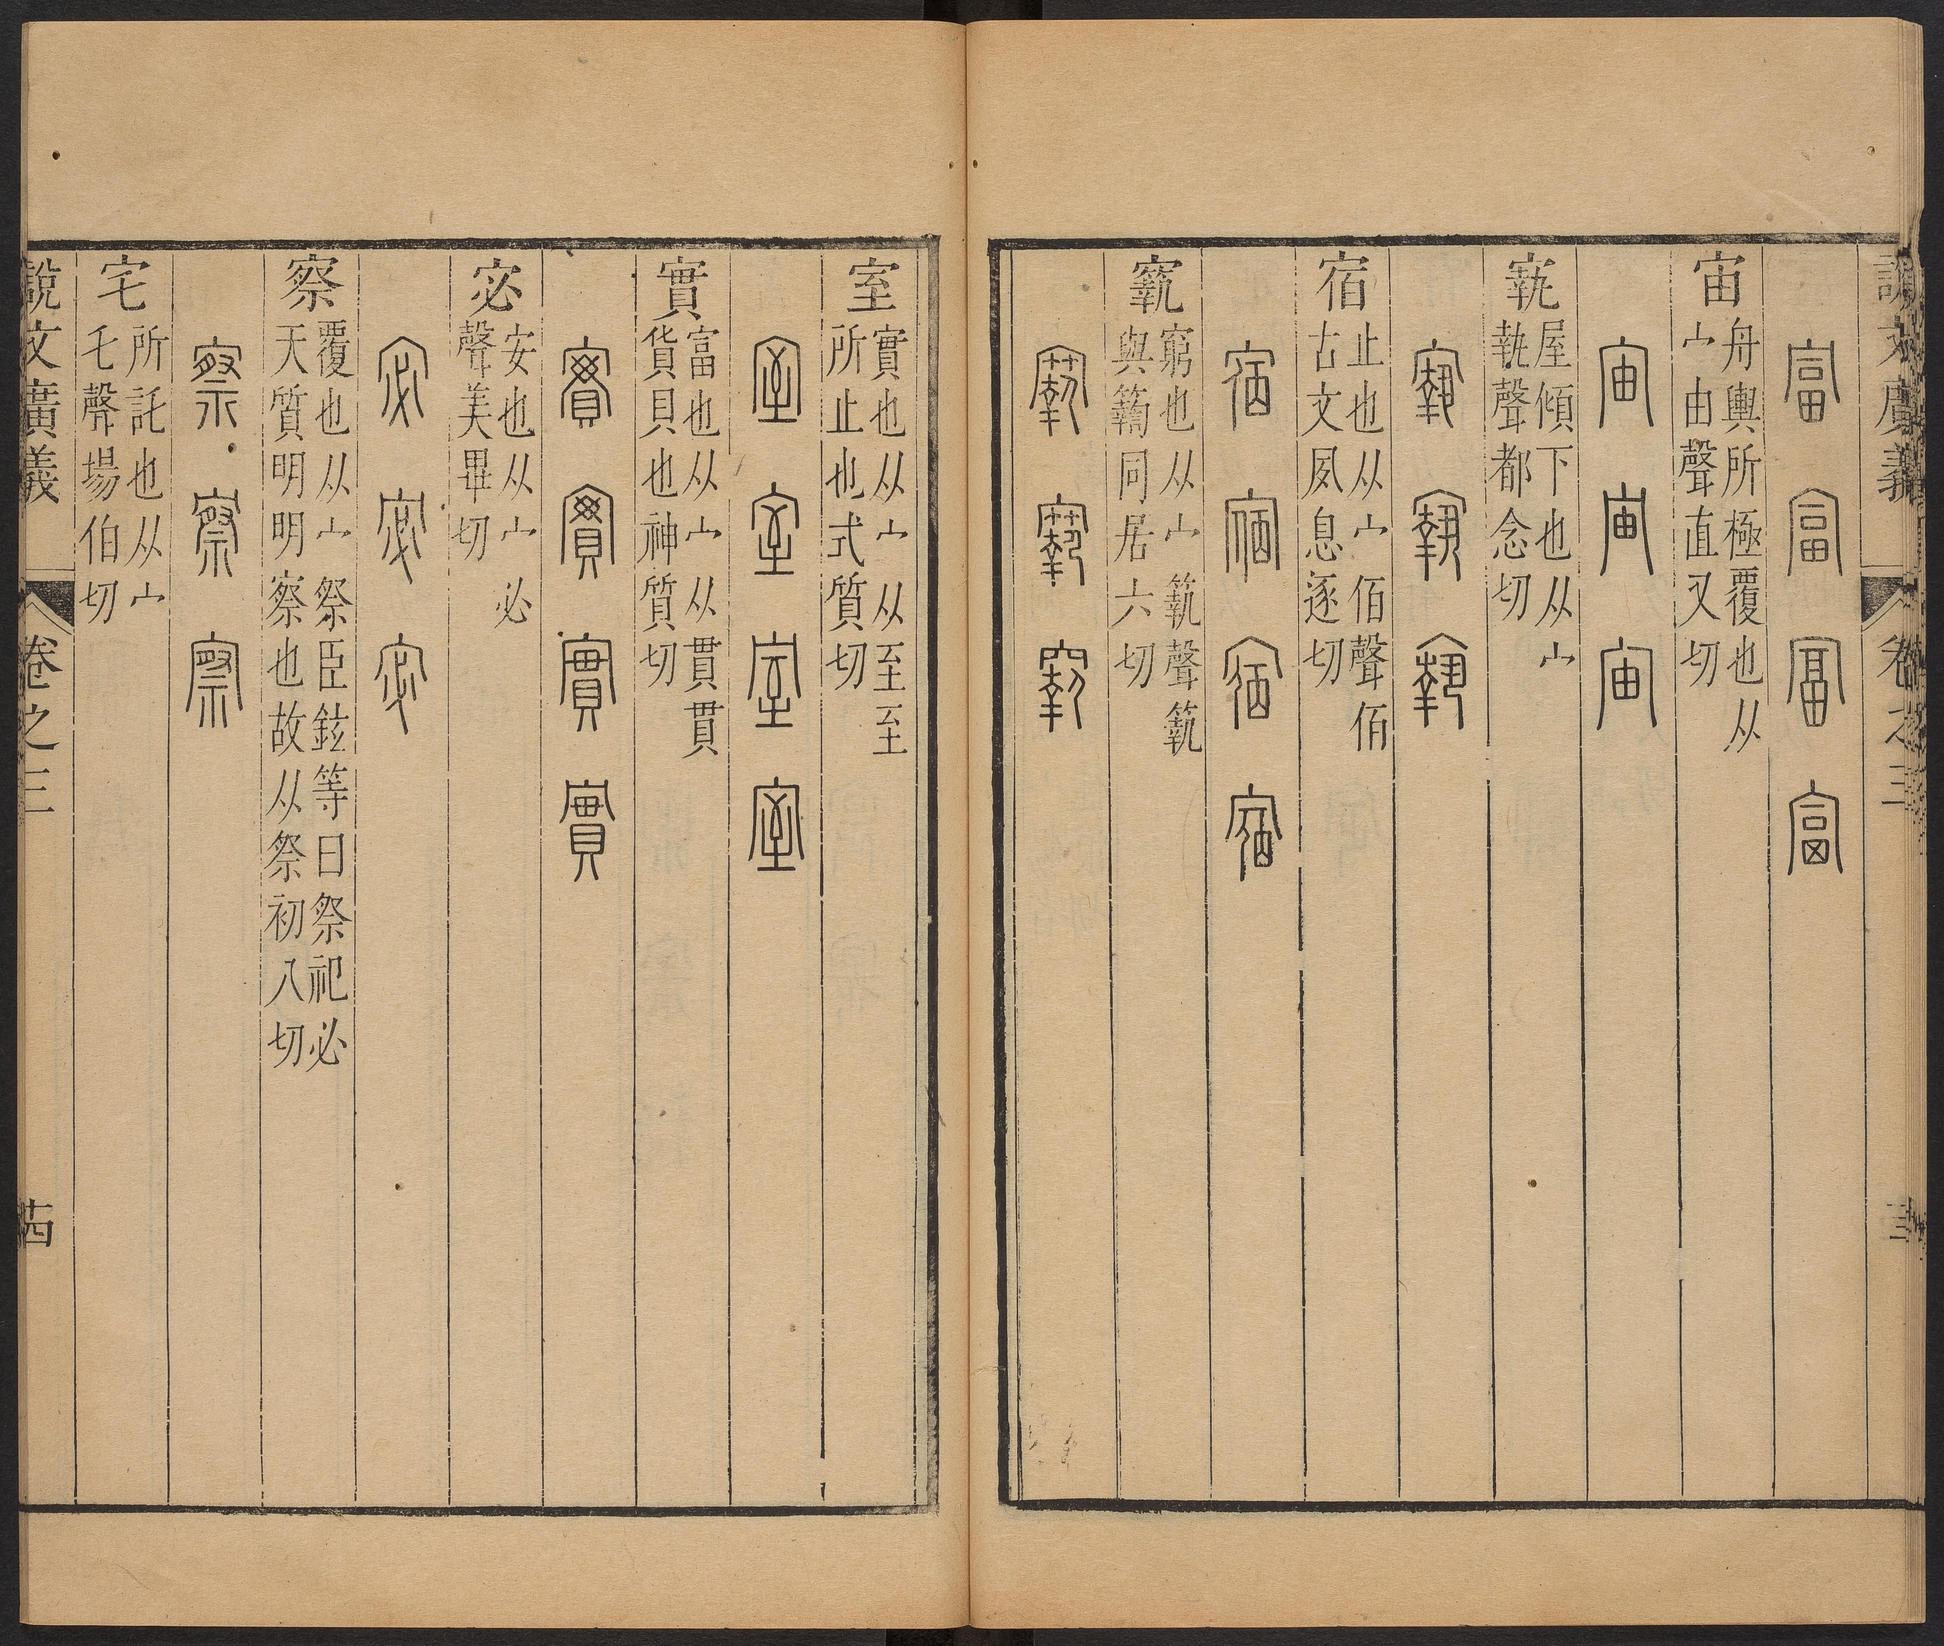 說文廣義 卷之三
富 富 富 富
宙 舟輿所極覆也从
宀由聲直又切
宙 宙 宙
㝪 屋傾下也从宀
執聲都念切
㝪 㝪 㝪
宿 止也从宀佰聲佰
古文夙息逐切
宿 宿 宿 宿
窮也从宀聲
與同居六切
室 實也从宀从至至
所止也式質切
室 室 室 室
實 富也从宀从貫貫
貨貝也神質切
實 實 實 實
宓 安也从宀必
聲美畢切
宓 宓 宓
察 覆也从宀祭臣鉉等曰祭祀必
天質明明察也故从祭初八切
察 察 察
宅 所託也从宀
乇聲場伯切
說文廣義 卷之三 十四